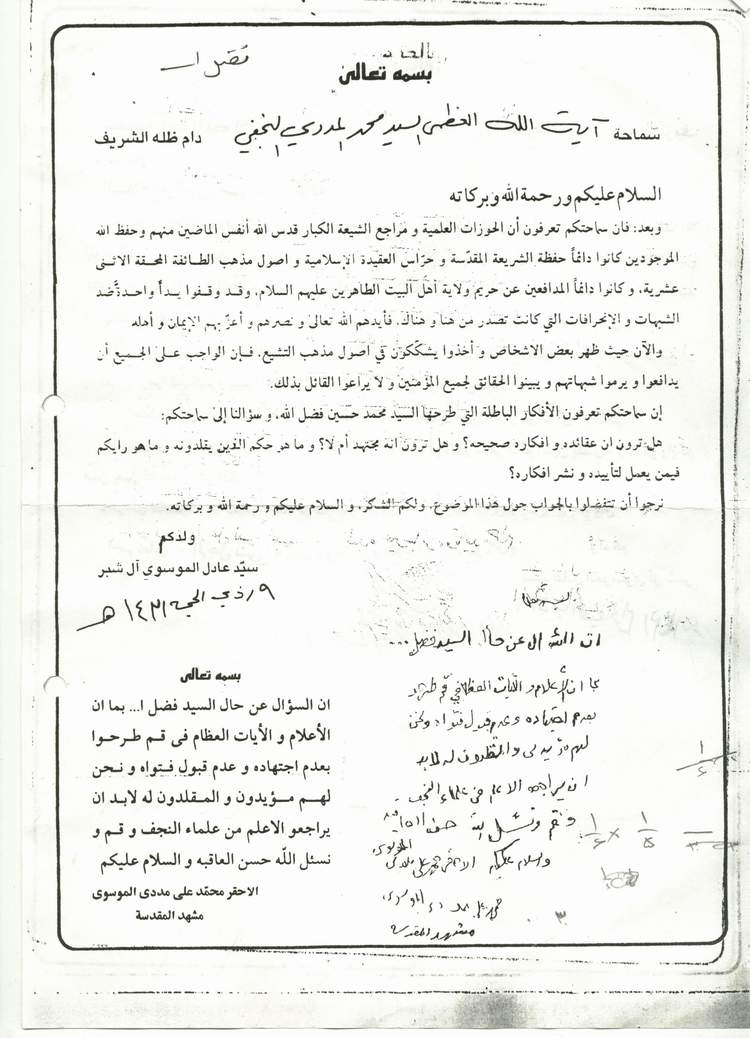 فضل ا...
بسمه تعالى
سماحة آية الله العظمى السيد محمد المددي النجفي دام ظله الشريف
السلام عليكم و رحمة الله و بركاته
وبعد: فان سماحتكم تعرفون أن الحوزات العلمية و مراجع الشيعة الكبار قدس الله أنفس الماضين منهم وحفظ الله
الموجودين كانوا دائماً حفظة الشريعة المقدّسة و حرّاس العقيدة الإسلامية و اصول مذهب الطائفة المحقة الاثنى
عشرية، و كانوا دائماً المدافعين عن حريم ولاية أهل البيت الطاهرين عليهم السلام، وقد وقفوا يداً واحدة ضد
الشبهات و الإنحرافات التي كانت تصدر من هنا و هناك. فأيدهم الله تعالى و نصرهم و أعزّ بهم الإيمان و أهله
والآن حيث ظهر بعض الاشخاص و أخذوا يشكّكون في اصول مذهب التشيع، فإن الواجب على الجميع أن
يدافعوا و يرموا شبهاتهم و يبينوا الحقائق لجميع المؤمنين و لا يراعوا القائل بذلك.
إن سماحتكم تعرفون الأفكار الباطلة التي طرحها السيد محمد حسين فضل الله، و سؤالنا إلى سماحتكم:
هل ترون ان عقائده و افكاره صحيحه؟ و هل ترون انه مجتهد أم لا؟ و ما هو حكم الذين يقلدونه و ما هو رايكم
فيمن يعمل لتأييده و نشر افكاره؟
نرجوا أن تتفضلوا بالجواب حول هذا الموضوع، ولكم الشكر، و السلام عليكم و رحمة الله و بركاته.
ولدكم
سيّد عادل الموسوي آل شبر
٩ / ذي الحجة ١٤٢١ هـ
بسمه تعالى
ان السؤال عن حال السيد فضل ...
بما ان الأعلام و الآيات العظام في قم طرحوا
بعدم اجتهاده و عدم قبول فتواه و نحن
لهم مؤيدون و المقلدون له لابد
ان يراجعو الاعلم من علماء النجف
و قم و نسئل الله حسن العاقبه
والسلام عليكم الاحقر محمد علي مددي الموسوي
محمد علي مددي الموسوي
مشهد المقدسه
بسمه تعالى
ان السؤال عن حال السيد فضل ا... بما ان
الأعلام و الأيات العظام فى قم طرحوا
بعدم اجتهاده و عدم قبول فتواه و نحن
لهم مؤيدون و المقلدون له لابد ان
يراجعو الاعلم من علماء النجف و قم و
نسئل اللّه حسن العاقبه و السلام عليكم
الاحقر محمّد على مددى الموسوى
مشهد المقدسة